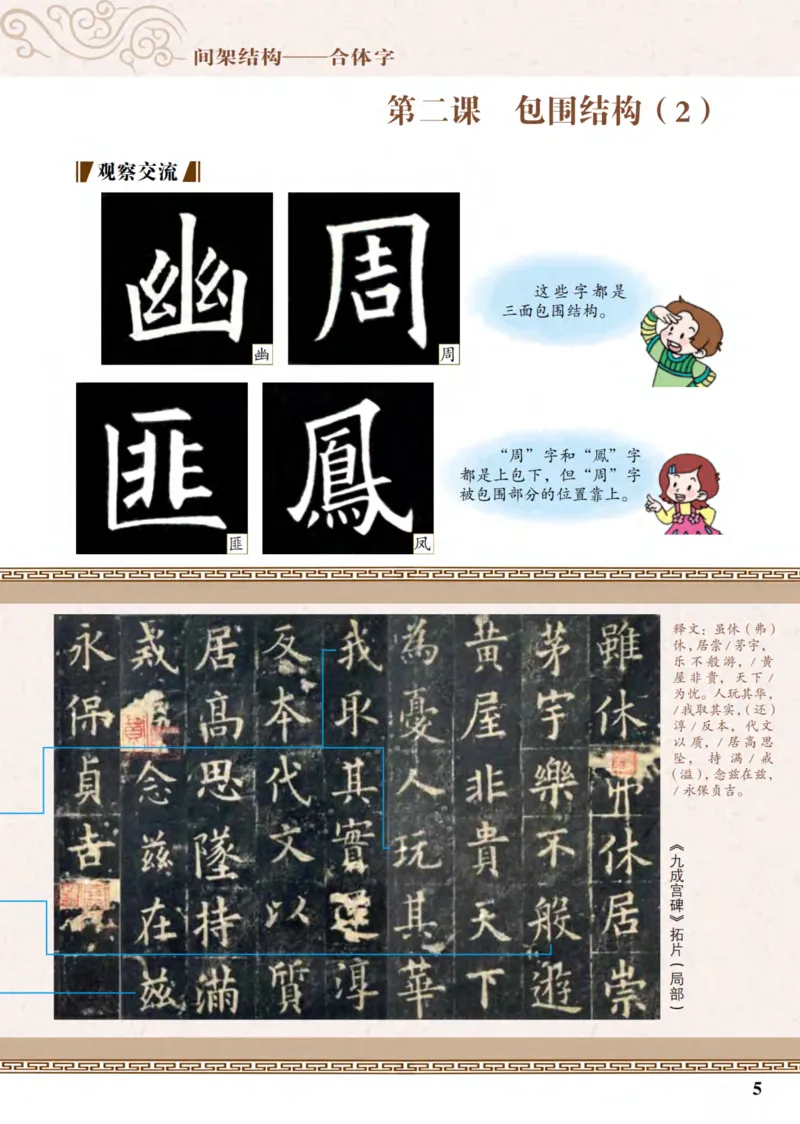 间架结构——合体字
第二课 包围结构（2）
观察交流
幽
周
幽
周
这些字都是
三面包围结构。
匪
鳳
匪
凤
“周”字和“鳳”字
都是上包下，但“周”字
被包围部分的位置靠上。
雖休弗休居崇
茅宇樂不般遊
黄屋非貴天下
為憂人玩其華
我取其實還淳
反本代文以質
居高思墜持滿
戒念兹在兹
永保貞吉
释文：虽休（弗）
休，居崇/茅宇，
乐不般游，/黄
屋非贵，天下/
为忧。人玩其华，
/我取其实，（还）
淳/反本，代文
以质，/居高思
坠，持满/戒
（溢），念兹在兹，
/永保贞吉。
《九成宫碑》拓片（局部）
5